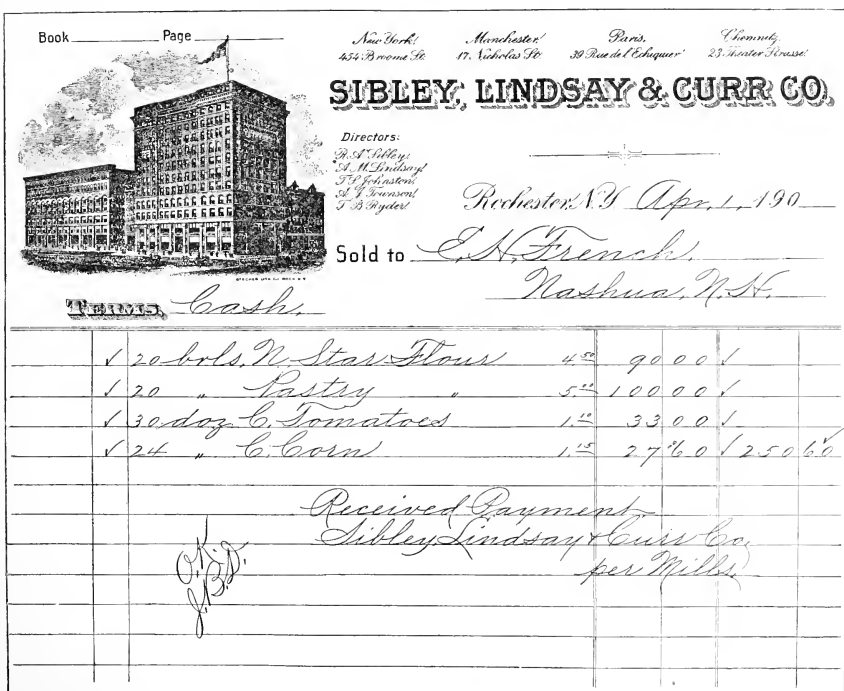 Book Page
New York. Manchester. Paris. Chemnitz.
454 Broome St. 17. Nicholas St. 39 Rue de l'Echiquier 23 Theater Strasse.
SIBLEY, LINDSAY & CURR CO.
Directors:
R. A. Sibley.
A. M. Lindsay.
T. S. Johnston.
A. J. Townson.
T. B. Ryder.
Rochester, N.Y. Apr. 1, 190
Sold to E. H. French.
Nashua, N.H.
TERMS, Cash.
✓ 20 brls. N. Star Flour 4.50 90 00 ✓
✓ 20 " Pastry " 5.00 100 00 ✓
✓ 30 doz C. Tomatoes 1.10 33 00 ✓
✓ 24 " C. Corn 1.15 27 60 ✓ 250 60 ✓
Received Payment
Sibley Lindsay & Curr Co.
per Mills.
O.K.
J.B.D.